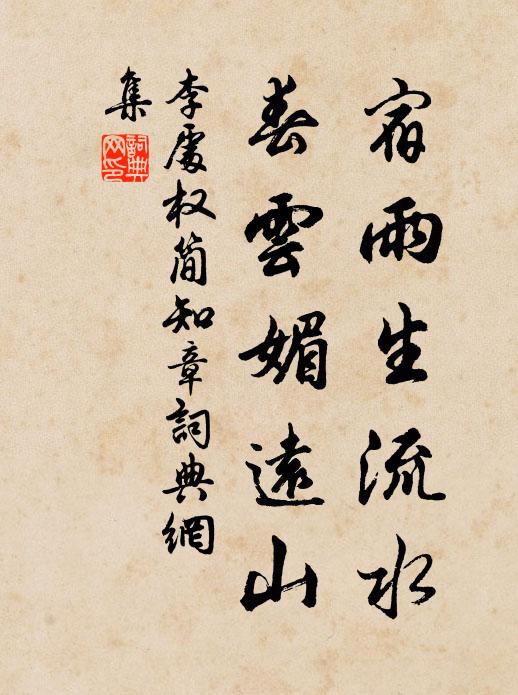 宿雨生流水
春雲媚遠山
李處权简知章詞典網
集
詞典
网印